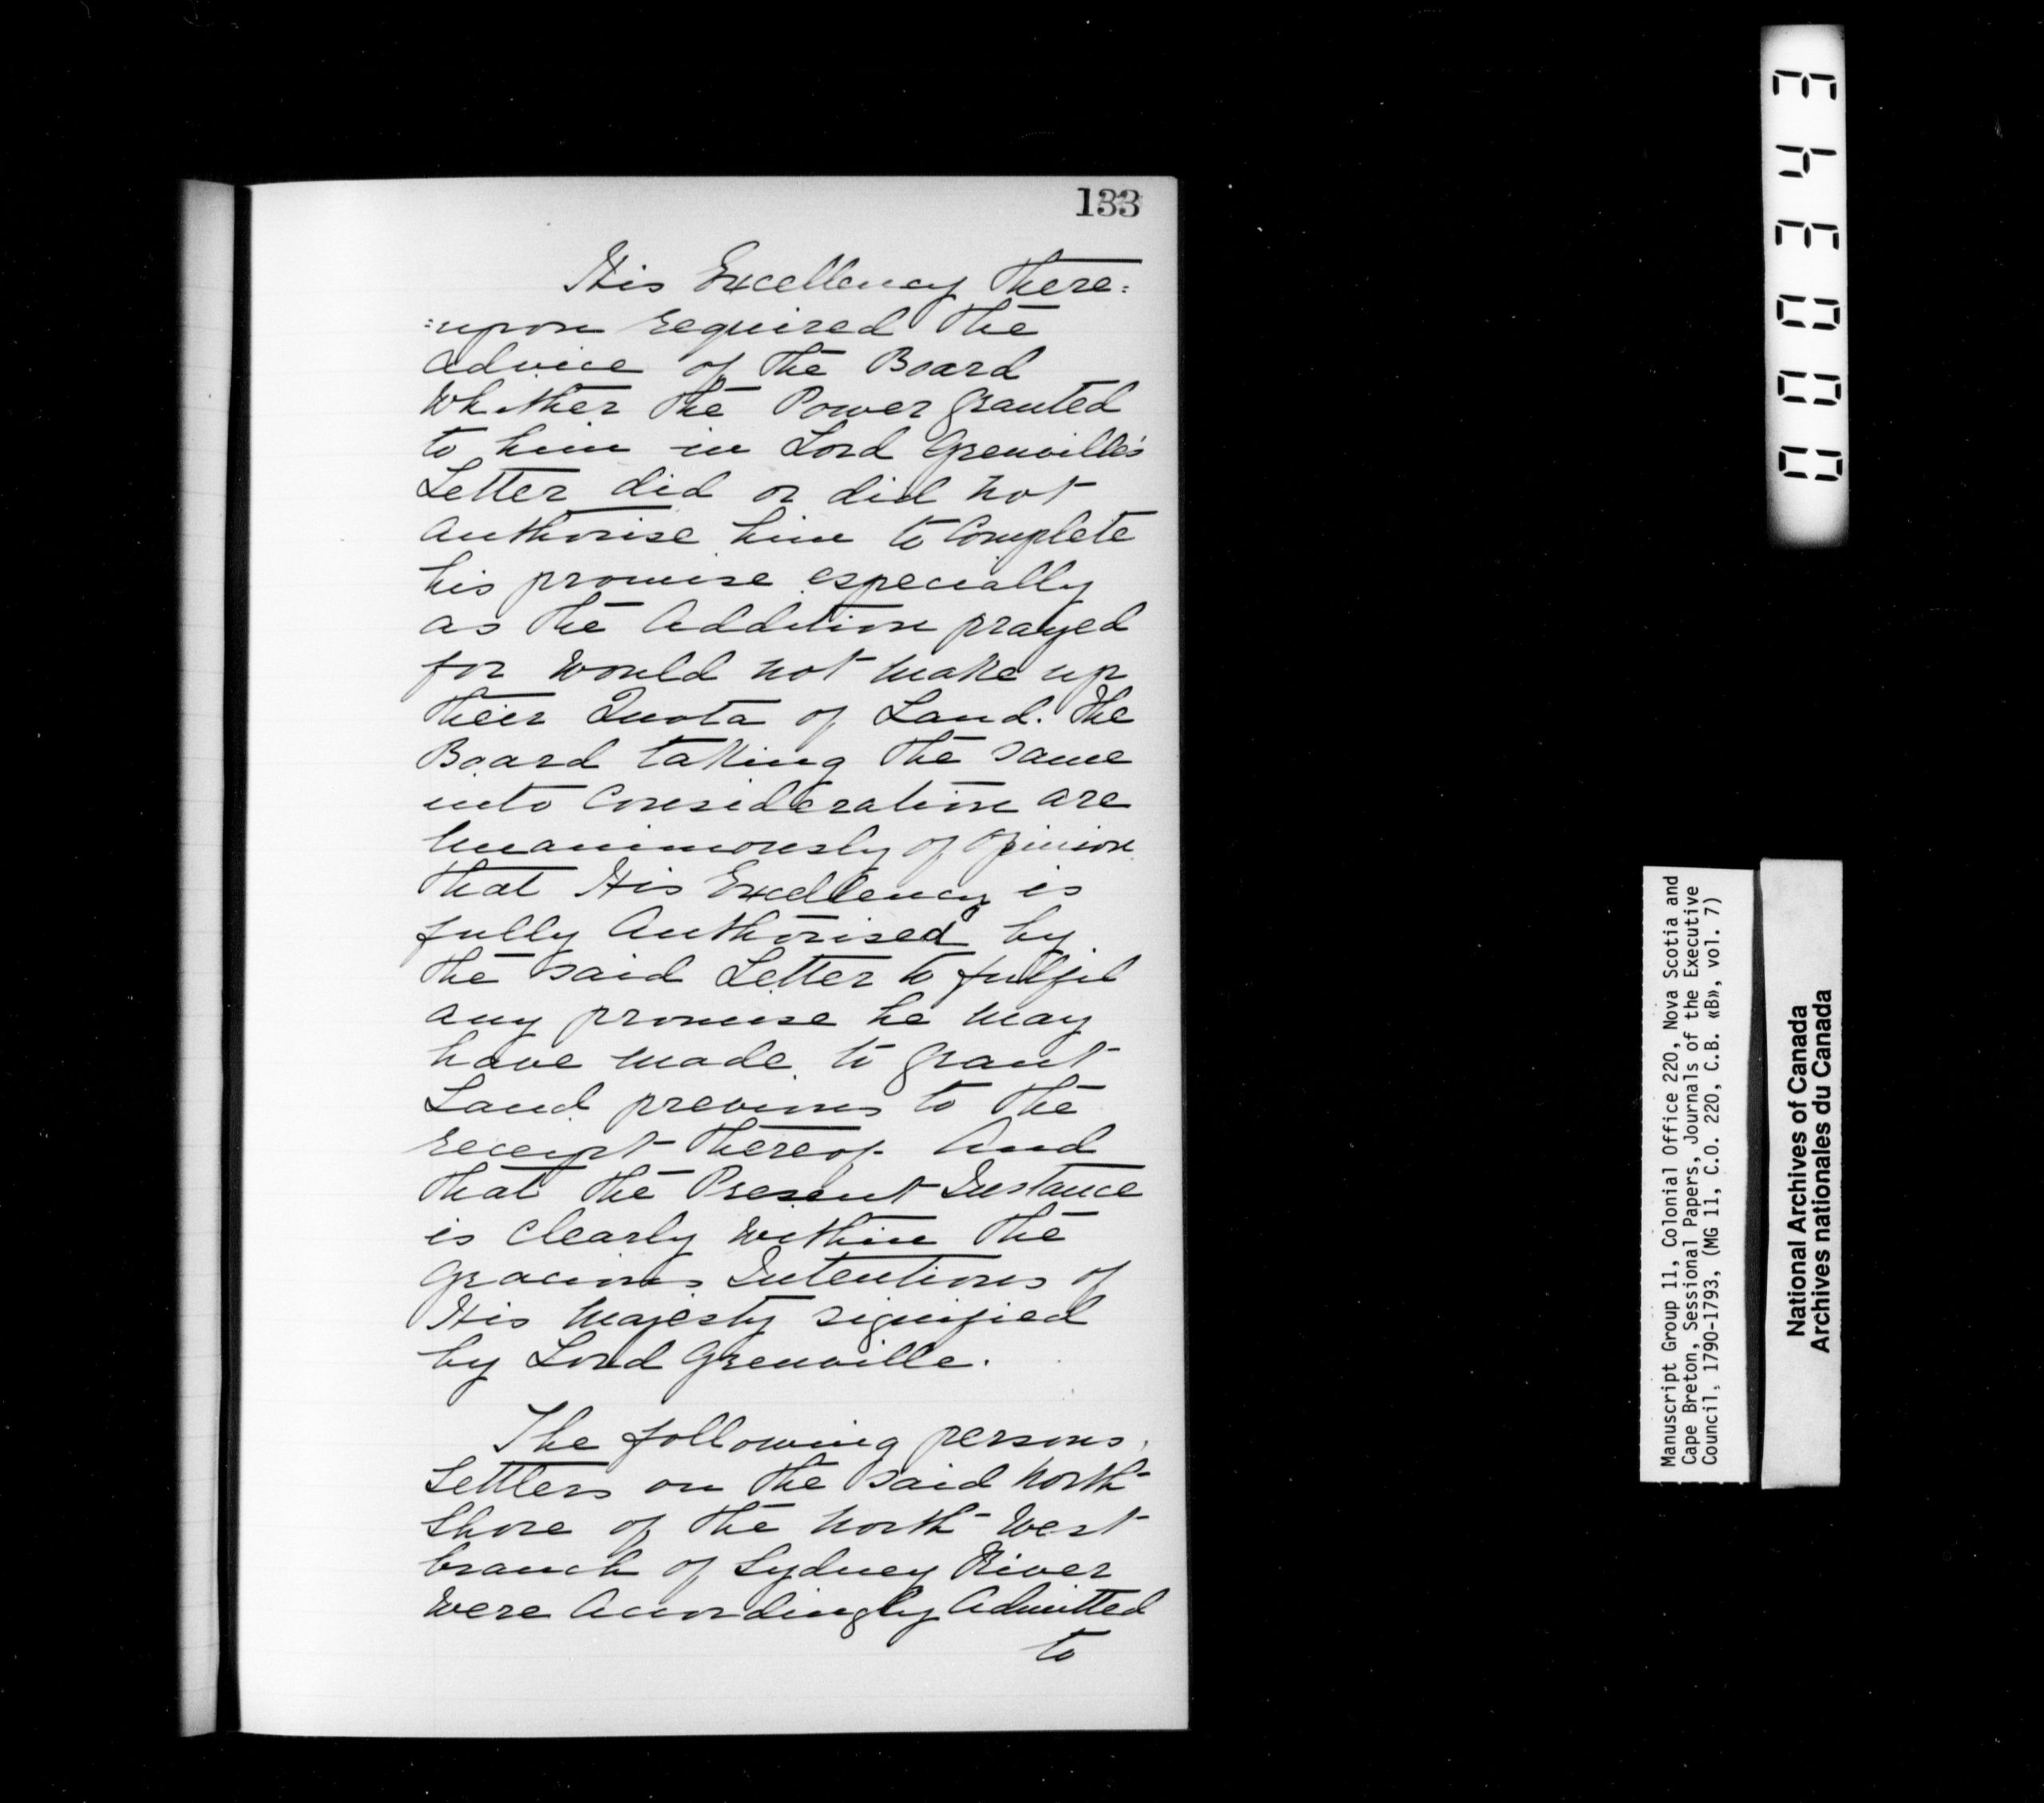 133
His Excellency there=
=upon required the
advice of the Board
Whether the Power granted
to him in Lord Grenville's
Letter did or did not
authorise him to Complete
his promise especially
as the Addition prayed
for would not make up
their Quota of Land. The
Board taking the same
into Consideration are
Unanimously of opinion
that His Excellency is
fully Authorised by
the said Letter to fulfil
any promise he may
have made to grant
Land previous to the
receipt thereof. And
that the Present Instance
is Clearly Within the
Gracious Intentions of
His Majesty signified
by Lord Grenville.
The following persons,
Settlers on the said North
Shore of the North West
branch of Sydney River
Were Accordingly Admitted
to
00D343
Manuscript Group 11, Colonial Office 220, Nova Scotia and
Cape Breton, Sessional Papers, Journals of the Executive
Council, 1790-1793, (MG 11, C.O. 220, C.B. «B», vol. 7)
National Archives of Canada
Archives nationales du Canada